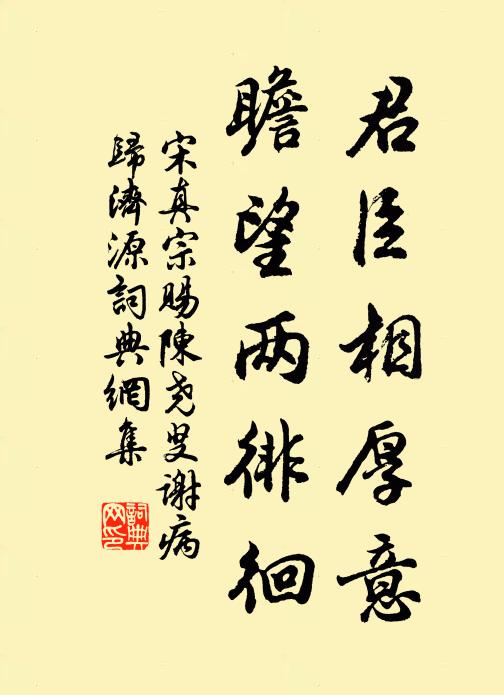 君臣相厚意
瞻望两徘徊
宋真宗賜陳尧叟謝病
歸濟源詞典網集
詞典
网印